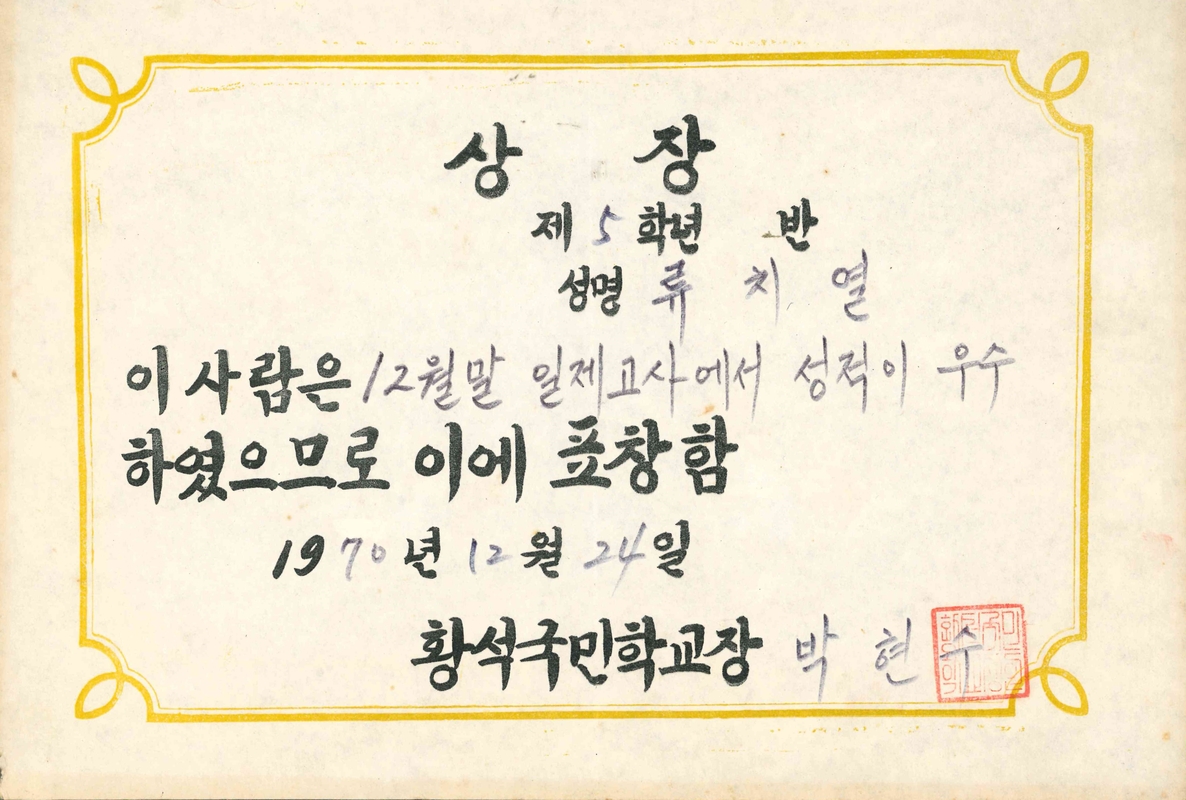 상 장
제 5 학년 반
성명 류 치 열
이 사람은 12월말 일제고사에서 성적이 우수
하였으므로 이에 표창함
1970년 12월 24일
황석국민학교장 박 현 수